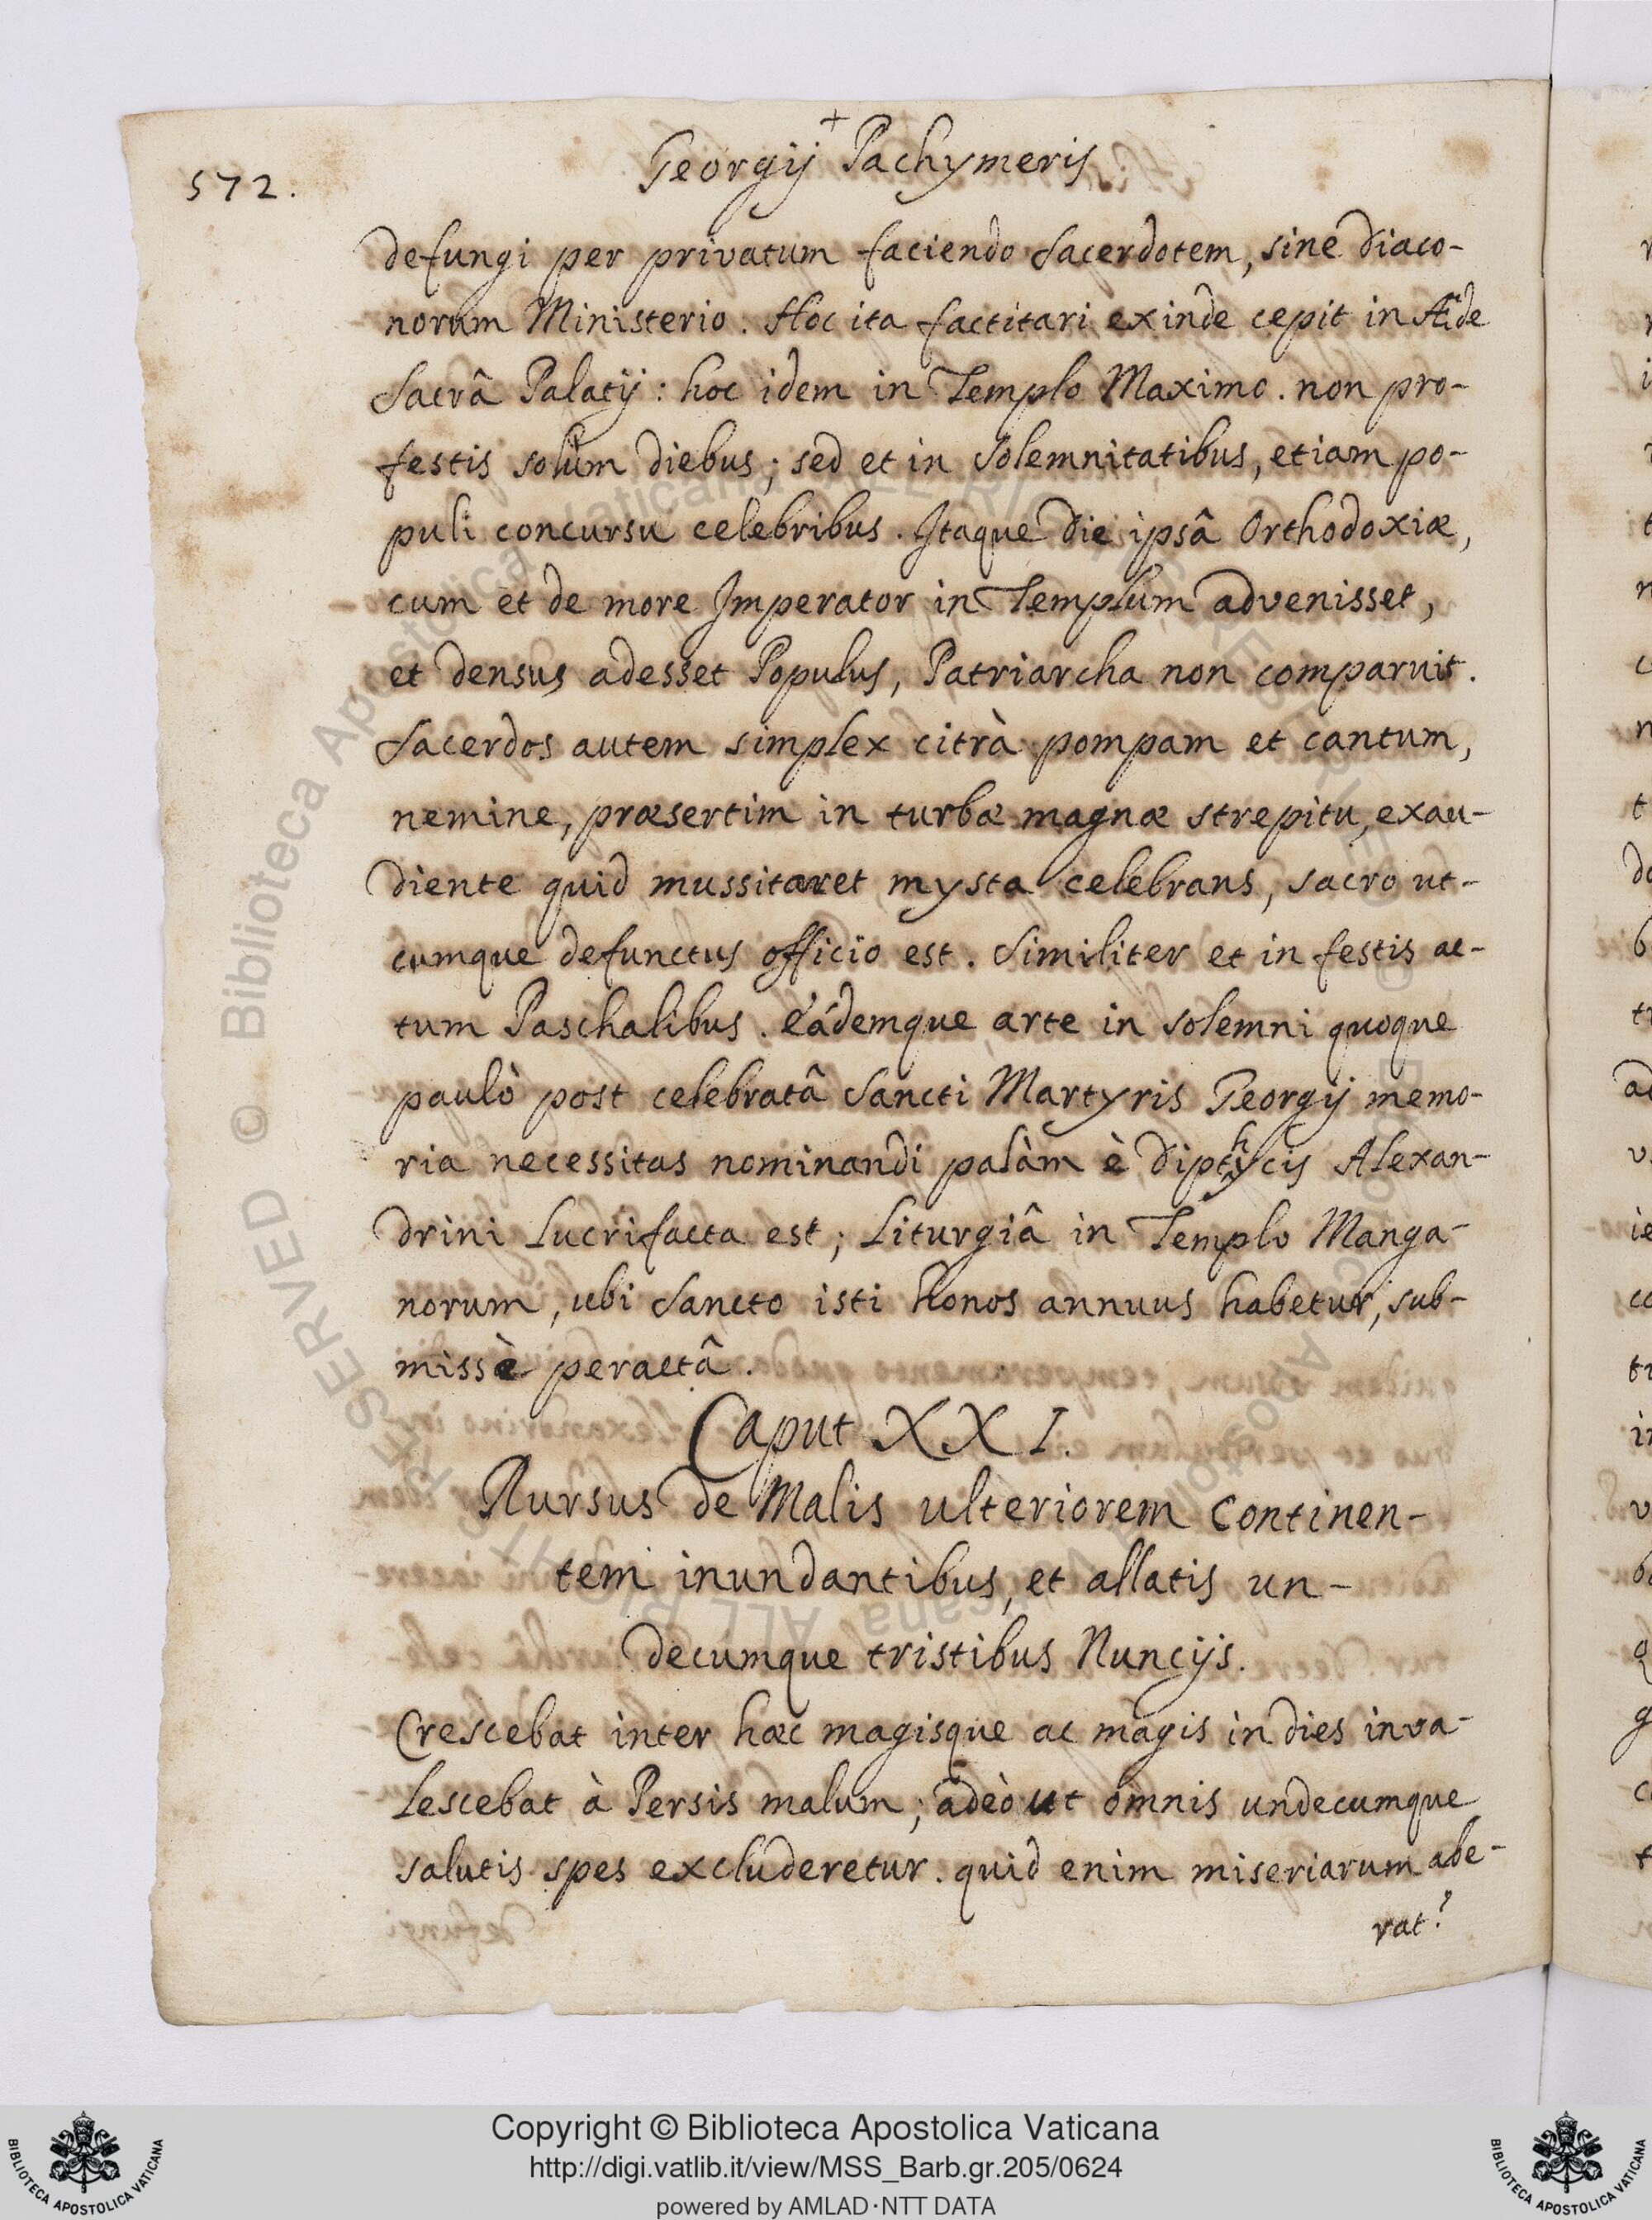 +
572.
Georgij Pachymeris
defungi per privatum faciendo Sacerdotem, sine Diaco-
norum Ministerio. Hoc ita factitari exinde cepit in Æde
Sacrâ Palatij: hoc idem in Templo Maximo. non pro-
festis solùm diebus; sed et in Solemnitatibus, etiam po-
puli concursu celebribus. Itaque Die ipsâ Orthodoxiæ,
cum et de more Imperator in Templum advenisset,
et densus adesset Populus, Patriarcha non comparuit.
Sacerdos autem simplex citrà pompam et cantum,
nemine, præsertim in turbæ magnæ strepitu, exau-
diente quid mussitaret mysta celebrans, sacro ut-
cumque defunctus officio est. Similiter et in festis ac-
tum Paschalibus. eâdemque arte in solemni quoque
paulò post celebratâ Sancti Martyris Georgij memo-
ria necessitas nominandi palàm è Dipthycis Alexan-
drini Lucrifacta est; Liturgiâ in Templo Manga-
norum, ubi Sancto isti honos annuus habetur, sub-
missè peractâ.
Caput XXI.
Rursus de Malis ulteriorem continen-
tem inundantibus, et allatis un-
decumque tristibus Nuncijs.
Crescebat inter hæc magisque ac magis in dies inva-
Lescebat à Persis malum; adeò ut omnis undecumque
salutis spes excluderetur. quid enim miseriarum abe-
rat?
Copyright © Biblioteca Apostolica Vaticana
http://digi.vatlib.it/view/MSS_Barb.gr.205/0624
powered by AMLAD·NTT DATA
BIBLIOTECA APOSTOLICA VATICANA
BIBLIOTECA APOSTOLICA VATICANA